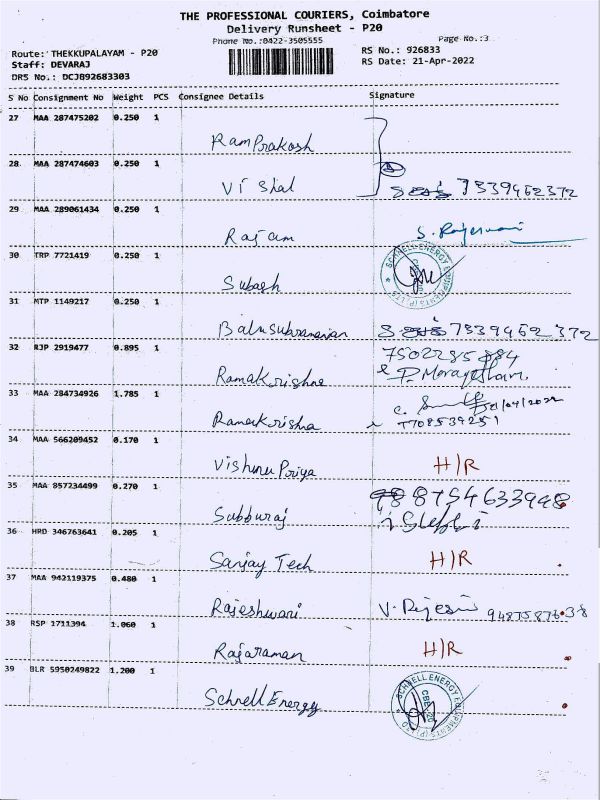 THE PROFESSIONAL COURIERS, Coimbatore
Delivery Runsheet - P20
Phone No.:0422-3505555 Page No.:3
Route: THEKKUPALAYAM - P20 RS No.: 926833
Staff: DEVARAJ RS Date: 21-Apr-2022
DRS No.: DCJB92683303
S No Consignment No Weight PCS Consignee Details Signature
27 MAA 287475202 0.250 1
RamPrakash
28 MAA 287474603 0.250 1
Vishal 7339462372
29 MAA 289061434 0.250 1
Rajam S. Rajeswari
30 TRP 7721419 0.250 1
Subash SCHNELL ENERGY EQUIPMENTS (P) LTD
31 MTP 1149217 0.250 1
Balusubramanian 7339462372
32 RJP 2919477 0.895 1 7502285884
Ramakrishna
33 MAA 284734926 1.785 1
Ramakrishna 7708539251
34 MAA 566209452 0.170 1
Vishnu Priya H/R
35 MAA 857234499 0.270 1
Subburaj
36 HRD 346763641 0.205 1
Sanjay Tech H/R
37 MAA 942119375 0.480 1
Rajeshwari
38 RSP 1711394 1.060 1
Rajaraman H/R
39 BLR 5950249822 1.200 1
Schnell Energy SCHNELL ENERGY EQUIPMENTS (P) LTD